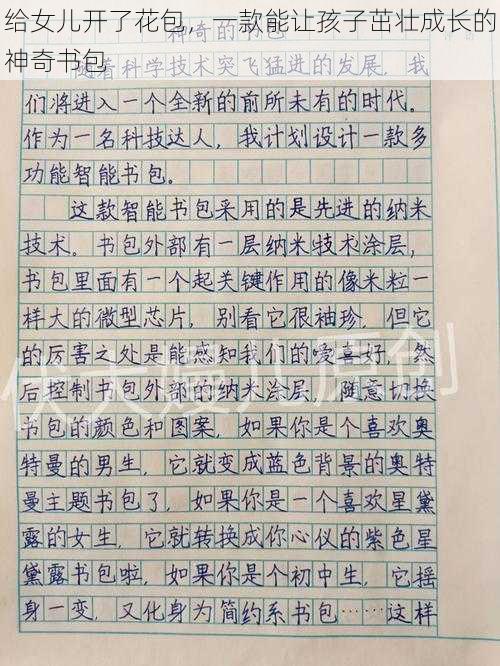 给女儿开了花包，一款能让孩子茁壮成长的
神奇书包
神奇的书包
随着科学技术突飞猛进的发展，我
们将进入一个全新的前所未有的时代。
作为一名科技达人，我计划设计一款多
功能智能书包。
这款智能书包采用的是先进的纳米
技术。书包外部有一层纳米技术涂层，
书包里面有一个起关键作用的像米粒一
样大的微型芯片，别看它很袖珍，但它
的厉害之处是能感知我们的嗳喜好，然
后控制书包外部的纳米涂层，随意切换
书包的颜色和图案，如果你是个喜欢奥
特曼的男生，它就变成蓝色背景的奥特
曼主题书包了，如果你是一个喜欢星黛
露的女生，它就转换成你心仪的紫色星
黛露书包啦，如果你是个初中生，它摇
身一变，又化身为简约系书包……这样